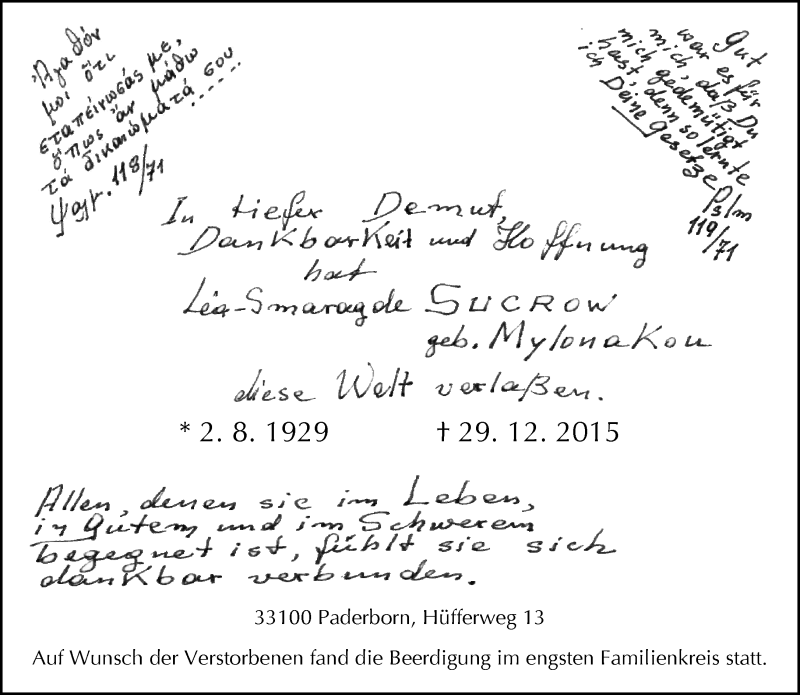 Ἀγαθόν
μοι ὅτι
εταπείνωσάς με,
ὅπως ἄν μάθω
τά δικαιώματά σου......
Ψαλ. 118/71
Gut
war es für
mich, daß Du
mich gedemütigt
hast, denn so lernte
ich Deine Gesetze
Pslm
119/71
In tiefer Demut,
Dankbarkeit und Hoffnung
hat
Léa-Smaragde SUCROW
geb. Mylonakou
diese Welt verlaßen.
* 2. 8. 1929 † 29. 12. 2015
Allen, denen sie im Leben,
in Gutem und im Schwerem
begegnet ist, fühlt sie sich
dankbar verbunden.
33100 Paderborn, Hüfferweg 13
Auf Wunsch der Verstorbenen fand die Beerdigung im engsten Familienkreis statt.